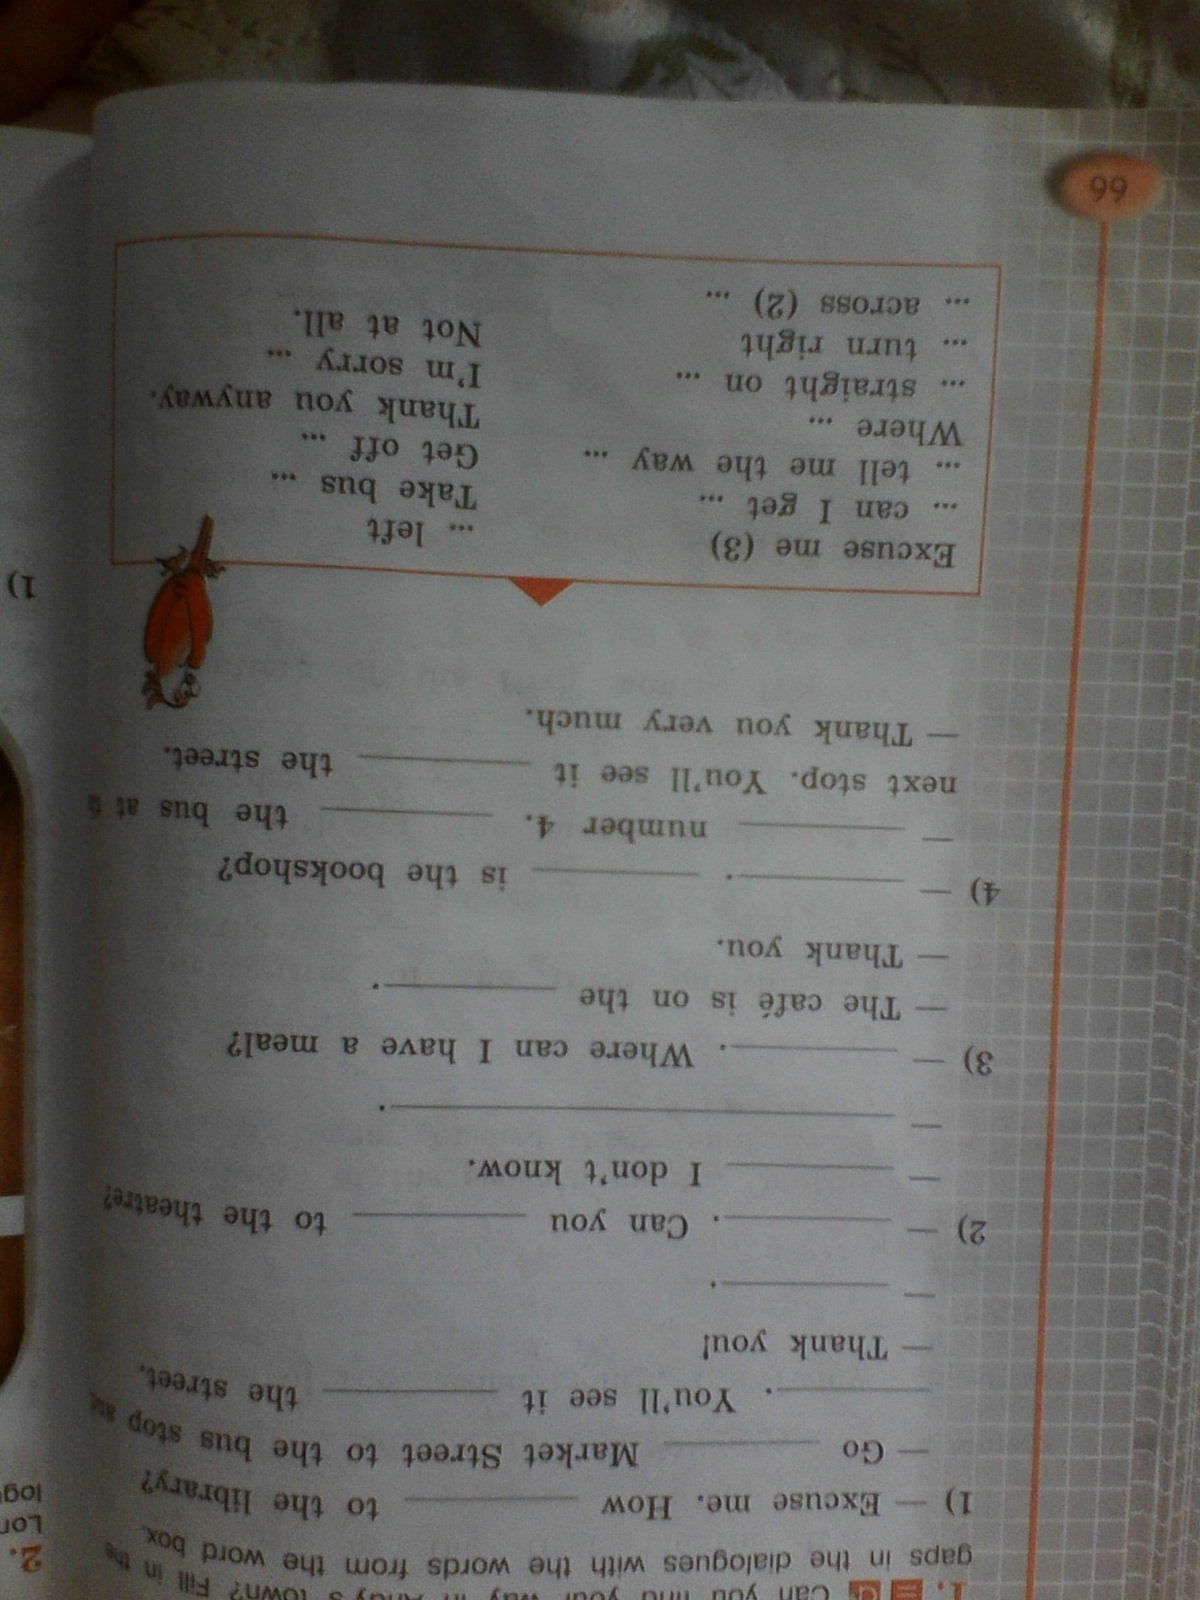 1. Can you find your way in Andy's town? Fill in the
gaps in the dialogues with the words from the word box.
1) — Excuse me. How ________ to the library?
— Go ________ Market Street to the bus stop and
________. You'll see it ________ the street.
— Thank you!
— ________.
2) — ________. Can you ________ to the theatre?
— ________ I don't know.
— ________.
3) — ________. Where can I have a meal?
— The café is on the ________.
— Thank you.
4) — ________. ________ is the bookshop?
— ________ number 4. ________ the bus at
next stop. You'll see it ________ the street.
— Thank you very much.
Excuse me (3)
... can I get ...
... tell me the way ...
Where ...
... straight on ...
... turn right
... across (2) ...
... left
Take bus ...
Get off ...
Thank you anyway.
I'm sorry ...
Not at all.
66
2.
1)